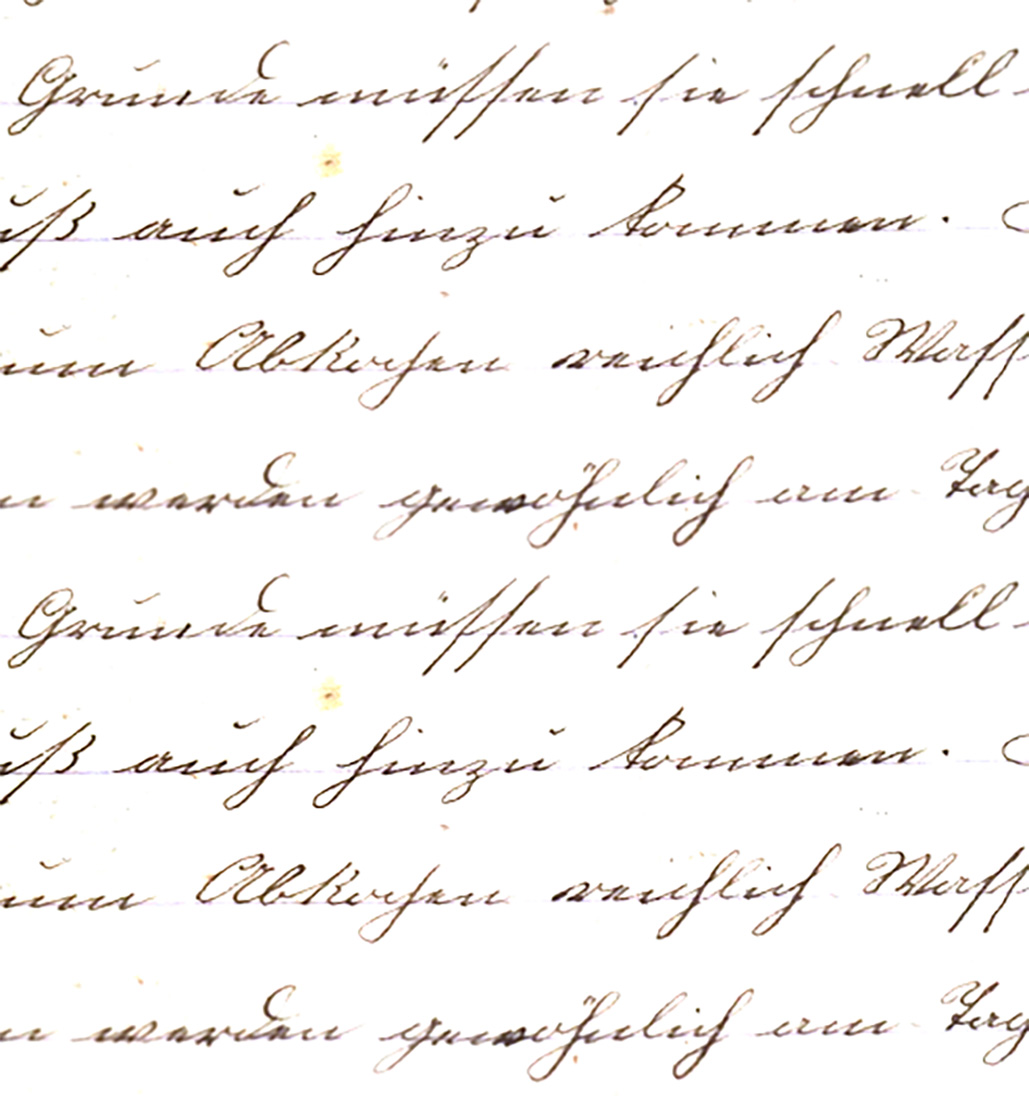 Grunde müssen sie schnell
uß auch hinzu kommen.
um Abkochen reichlich Wass
n werden gewöhnlich am Tag
Grunde müssen sie schnell
uß auch hinzu kommen.
um Abkochen reichlich Wass
n werden gewöhnlich am Tag